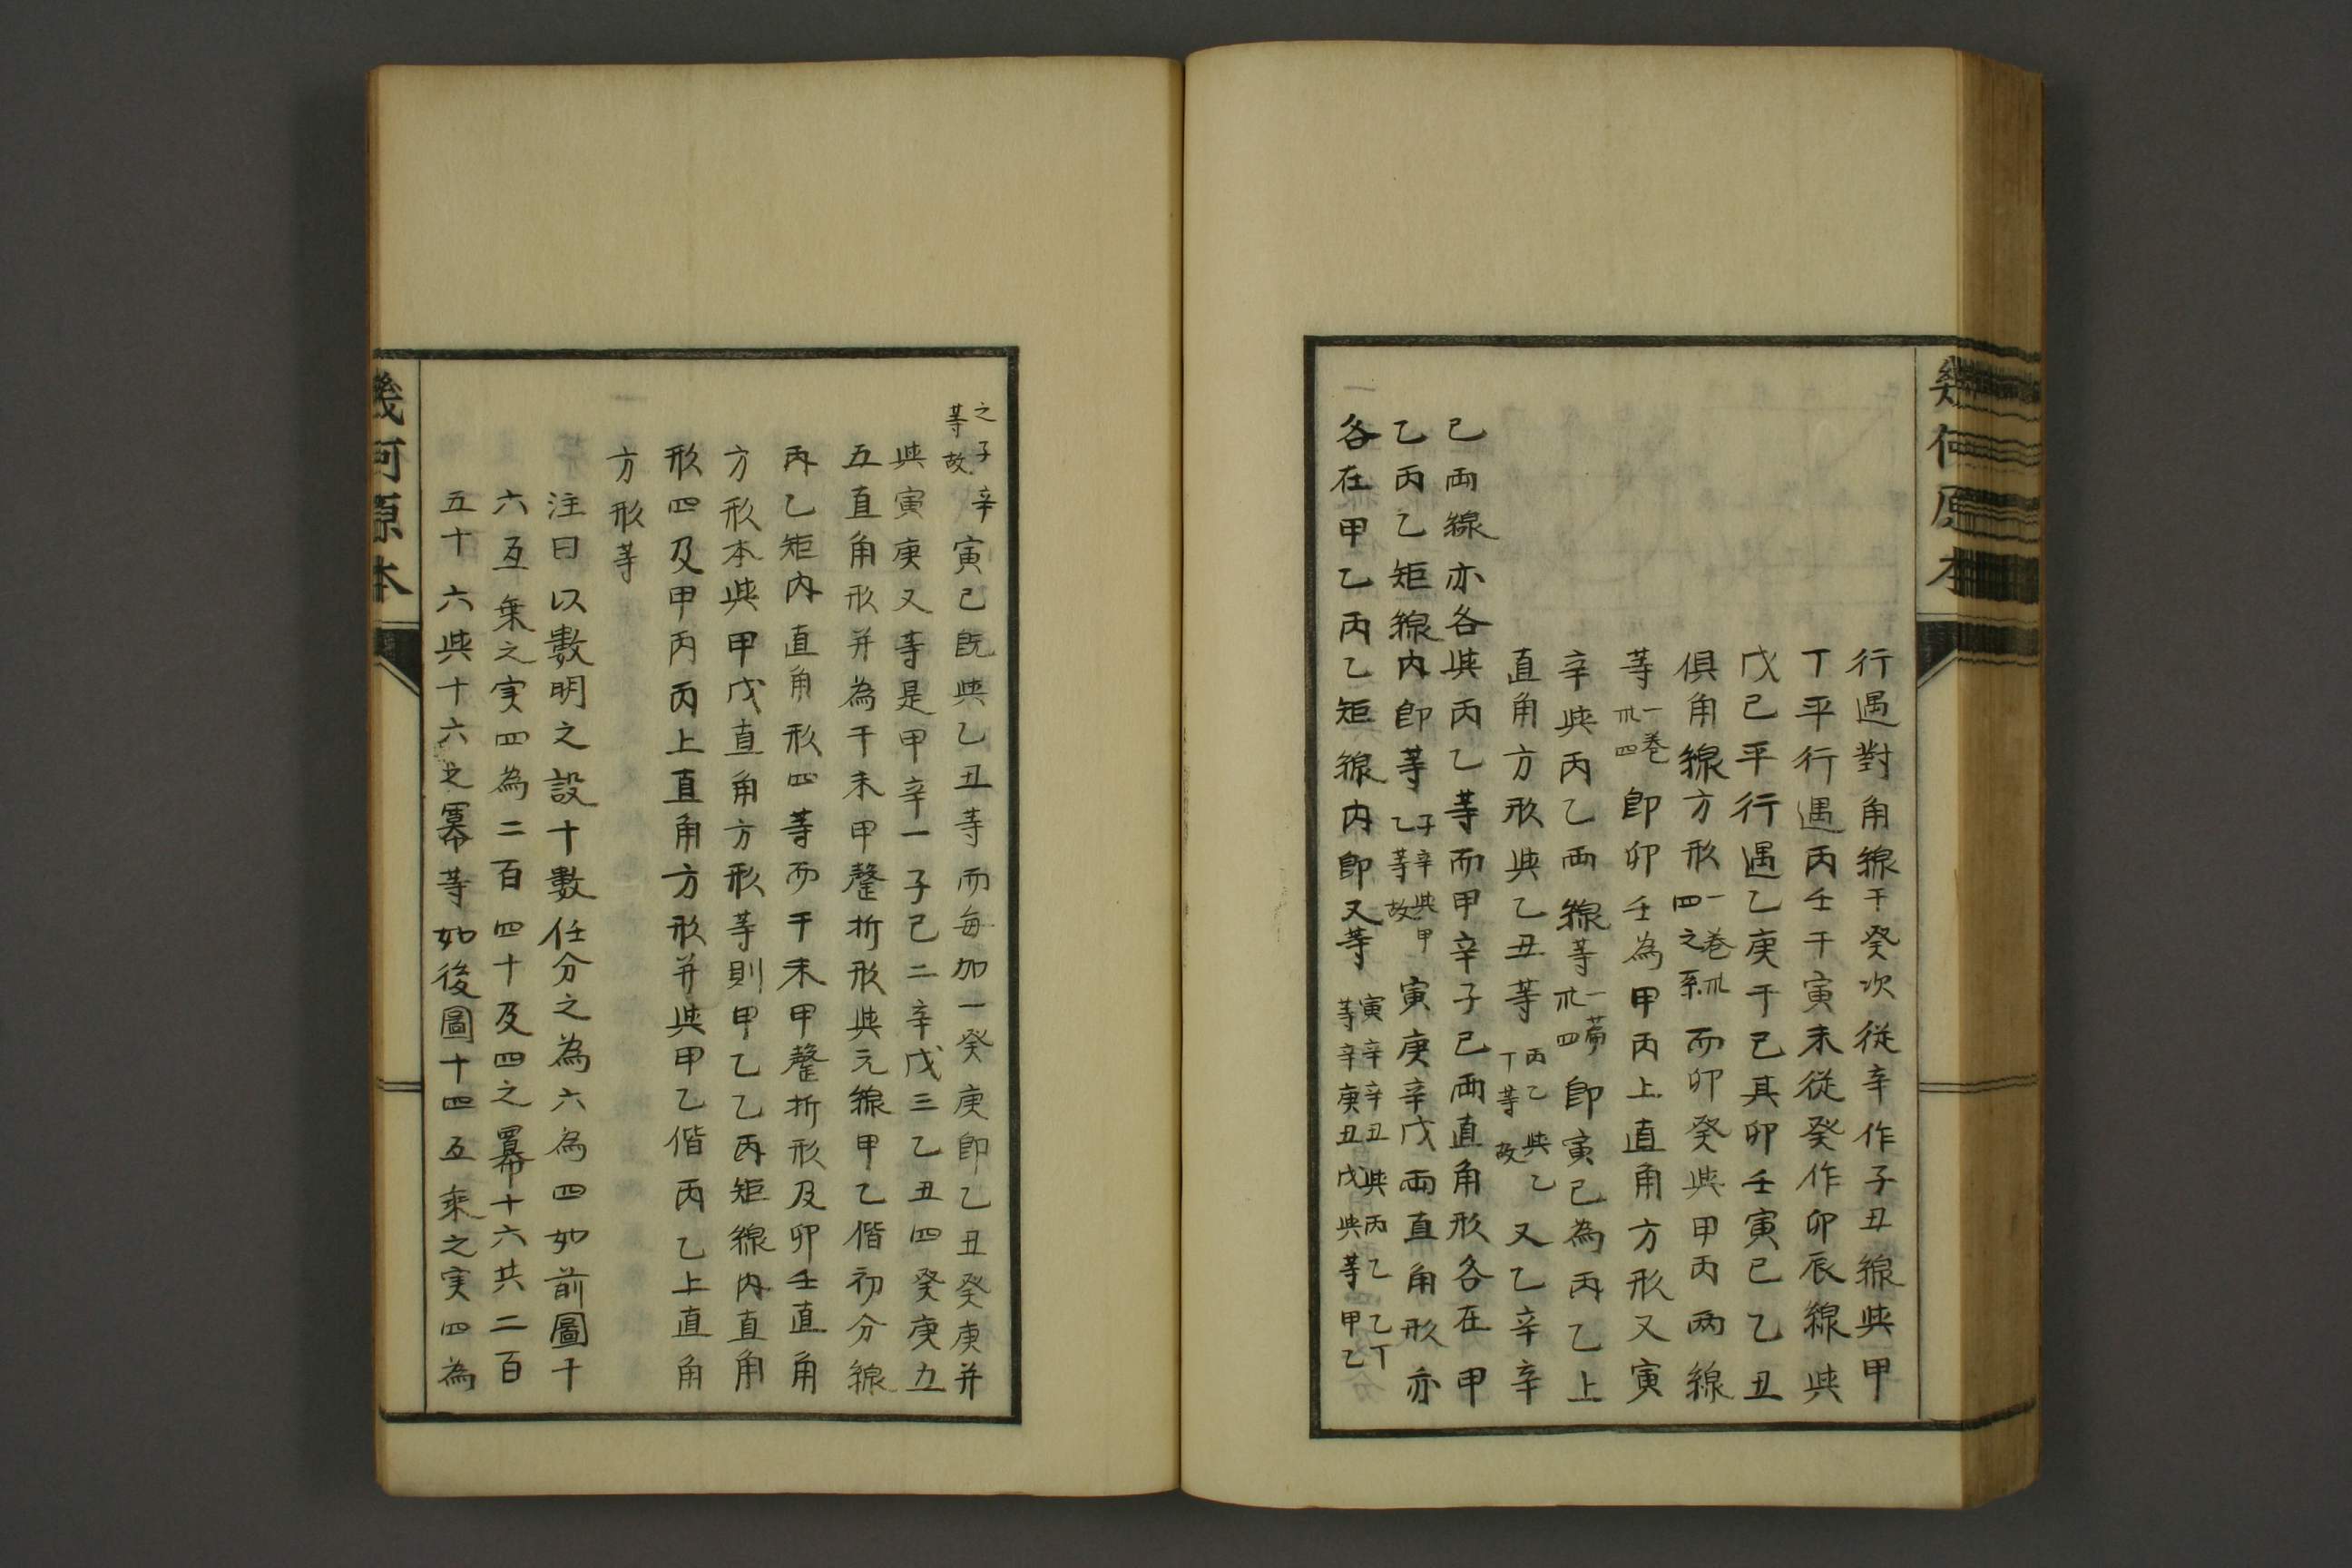 幾何原本
行遇對角線于癸次従辛作子丑線與甲
丁平行遇丙壬于寅末従癸作卯辰線與
戊己平行遇乙庚于己其卯壬寅己乙丑
俱角線方形一卷卅四之系而卯癸與甲丙兩線
等一卷卅四即卯壬為甲丙上直角方形又寅
辛與丙乙兩線等一篇卅四即寅己為丙乙上
直角方形與乙丑等丙乙與乙丁等故又乙辛辛
己兩線亦各與丙乙等而甲辛子己兩直角形各在甲
乙丙乙矩線内即等子辛與甲乙等故寅庚辛戊兩直角形亦
各在甲乙丙乙矩線内即又等寅辛辛丑與丙乙乙丁等辛庚丑戊與等甲乙
之子辛等故寅己既與乙丑等而每加一癸庚即乙丑癸庚并
與寅庚又等是甲辛一子己二辛戊三乙丑四癸庚五
五直角形并為干未甲罄折形與元線甲乙偕初分線
丙乙矩内直角形四等而干未甲罄折形及卯壬直角
方形本與甲戊直角方形等則甲乙乙丙矩線内直角
形四及甲丙丙上直角方形并與甲乙偕丙乙上直角
方形等
注曰以數明之設十數任分之為六為四如前圖十
六互乗之実四為二百四十及四之羃十六共二百
五十六與十六之羃等如後圖十四互乗之実四為
幾何原本